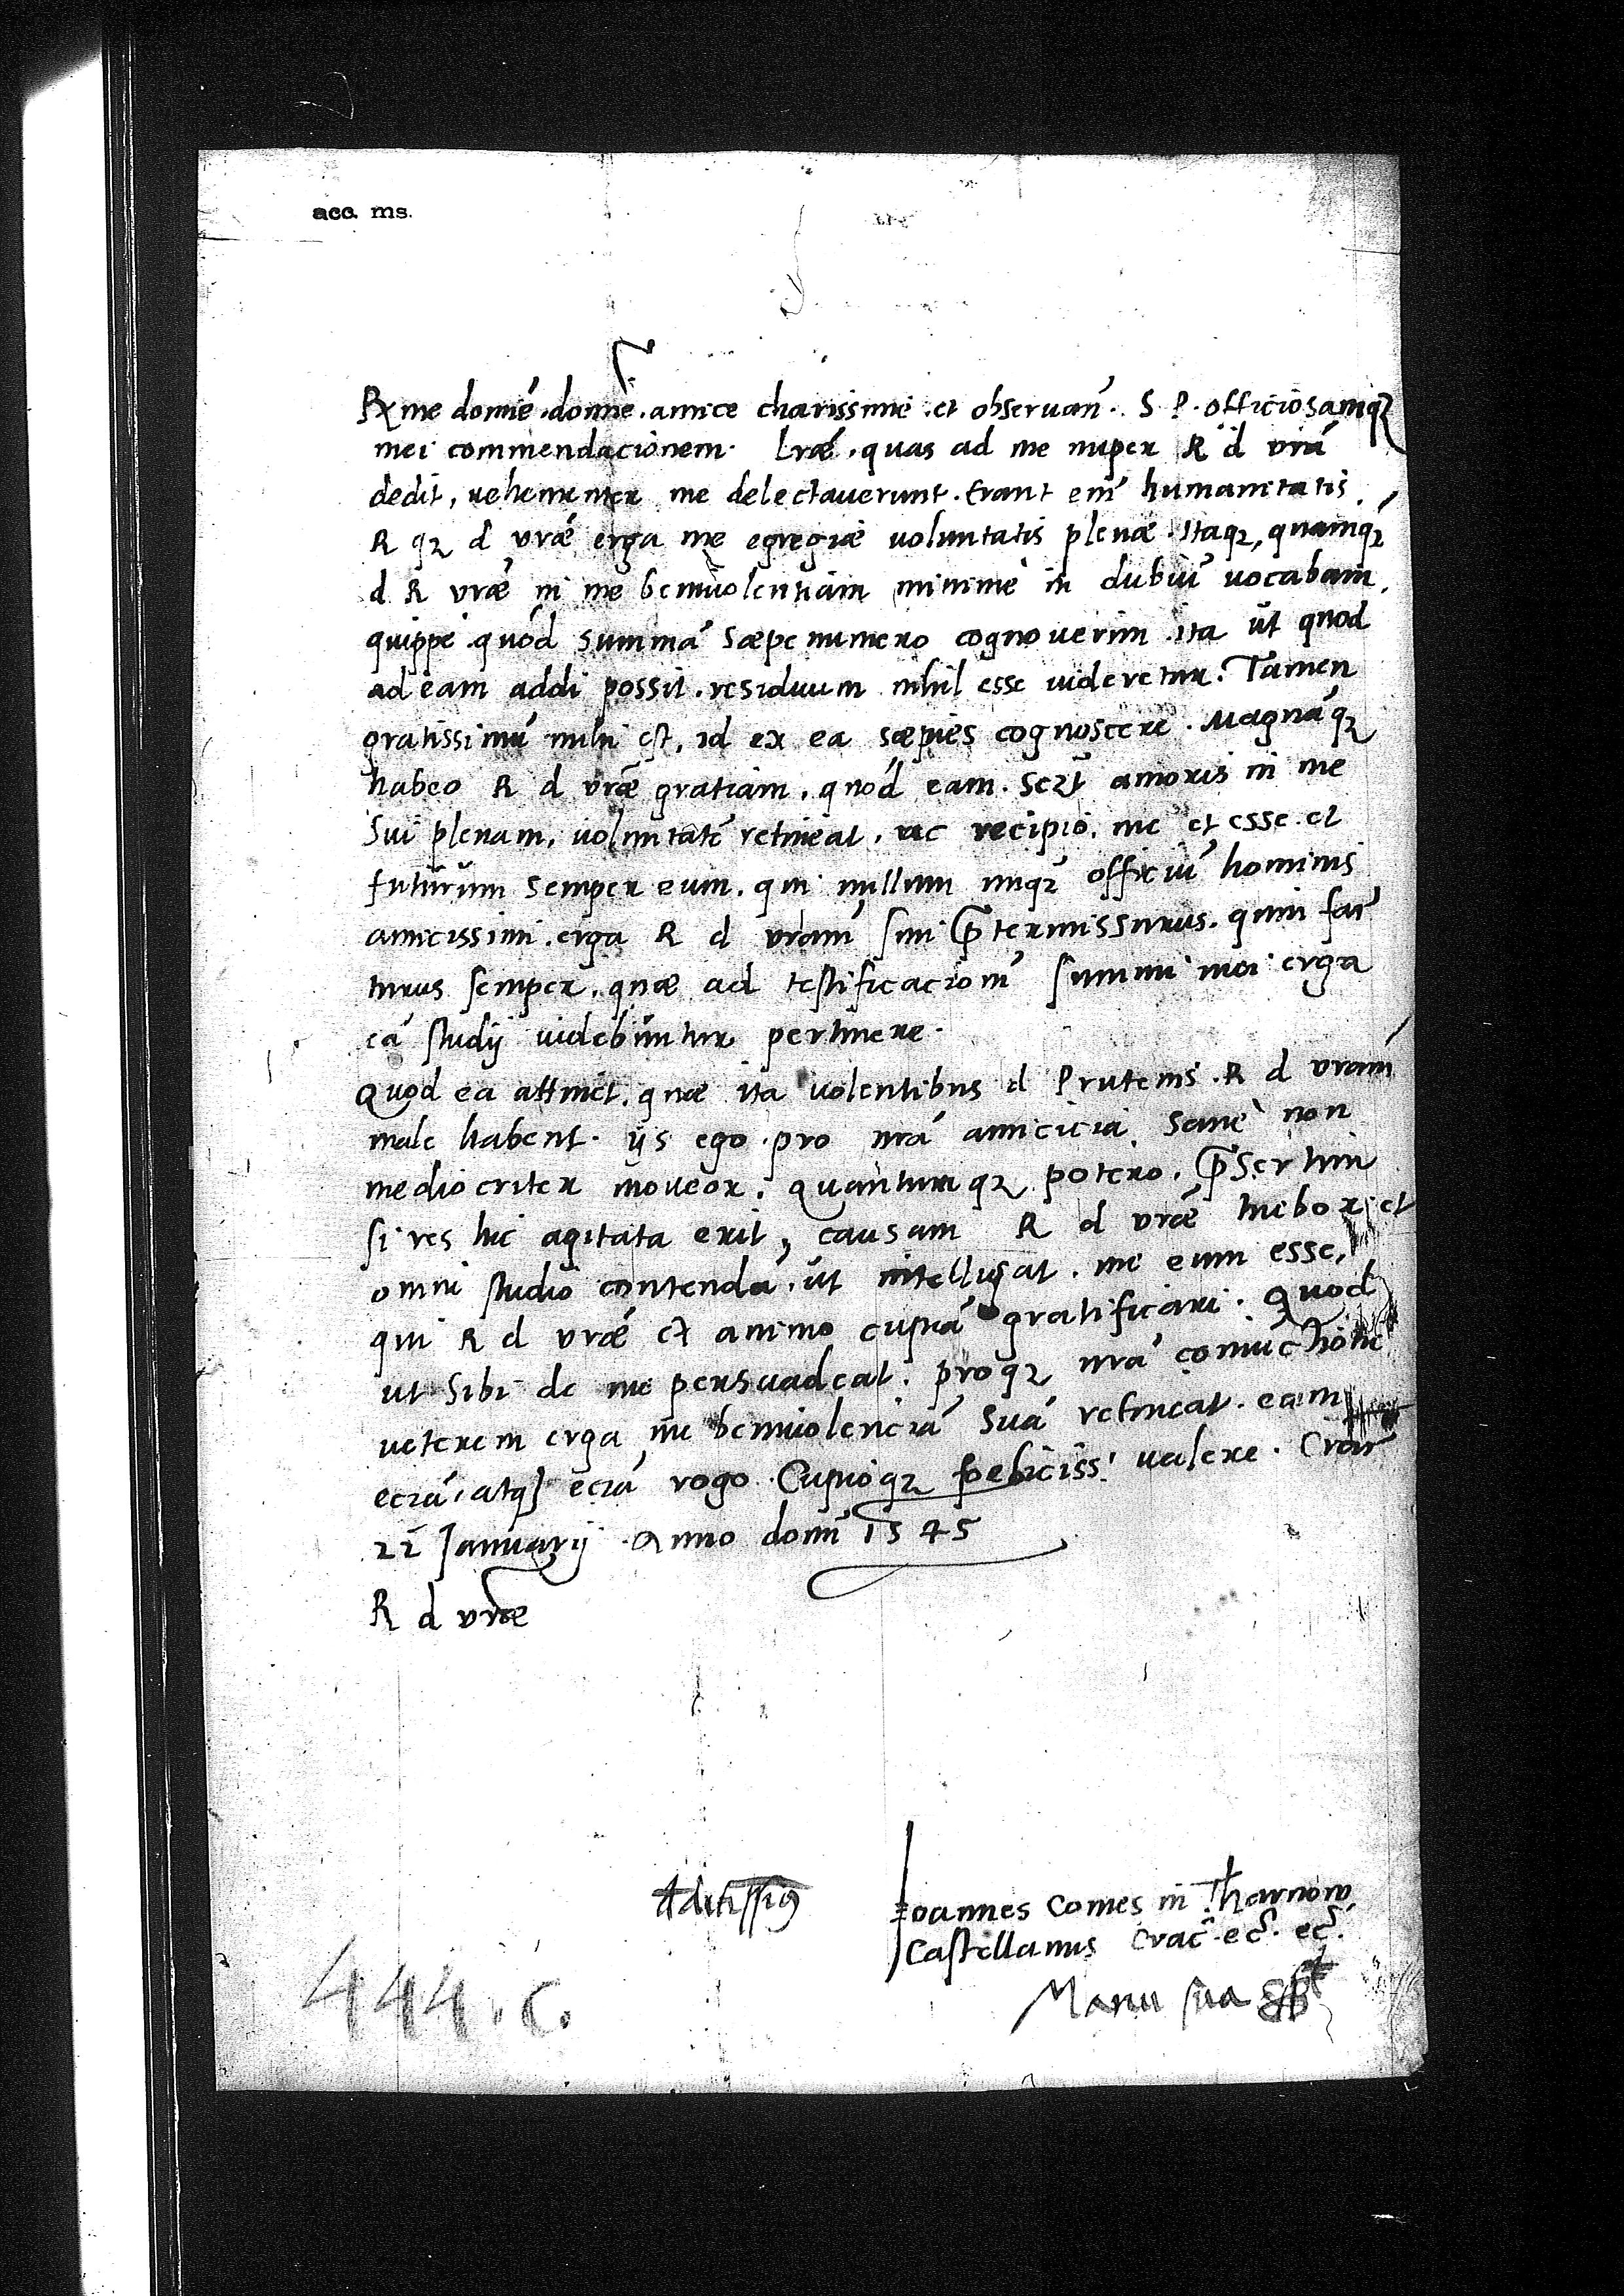 acc. ms.
Rx̃me domẽ. domẽ. amice charissime et obseruañ. S. P. officiosamq3
mei commendacionem. Lr̃æ, quas ad me nuper R d vr̃a
dedit, uehementer me delectauerunt. Erant em̃ humanitatis.
R q3 d vr̃æ erga me egregiæ voluntatis plenæ. Itaq3, quamq3
d R vr̃æ in me beniuolentiam minime in dubiũ uocabam.
quippe quód summã sæpenumero cognouerim. ita ut quod
ad eam addi possit. residuum nihil esse uideretur. Tamen
gratissimũ mihi est, id ex ea sæpius cognoscere. Magnãq3
habeo R d vr̃æ gratiam, quód eam. Sczt̃ amoris in me
Sui plenam, uoluntatẽ retineat. ac recipio. me et esse et
futurum semper eum. qui nullum unq3 officiũ hominis
amicissimi. erga R d vram̃ sim p̃termissurus. quin fac̃
turus semper. quæ ad testificacionẽ summi mei erga
eã studij uidebuntur pertinere.
Quod ea attinet. quæ ita uolentibus d Prutenis. R d vram̃
male habent. ijs ego pro nr̃a amicicia Sane non
mediocriter moueor. Quantumq3 potero. p̃sertim
si res hic agitata erit, causam R d vr̃æ tuebor et
omni studio contendã. ut intelligat. me eum esse,
qui R d vr̃æ ex animo cupiã gratificari. Quod
ut sibi de me persuadeat. proq3 nr̃a coniũctione
ueterem erga me beniuolenciã Suã retineat. eam
eciã, atq3 eciã rogo. Cupioq3 foeliciss: ualere. Crac̃
22 Januarij. Anno domĩ 1545
R d vræ
Aditissi9
Ioannes Comes in Tharnow
Castellanus Crac̃. ec̃. ec̃.
Manu sua sspt
444. c.